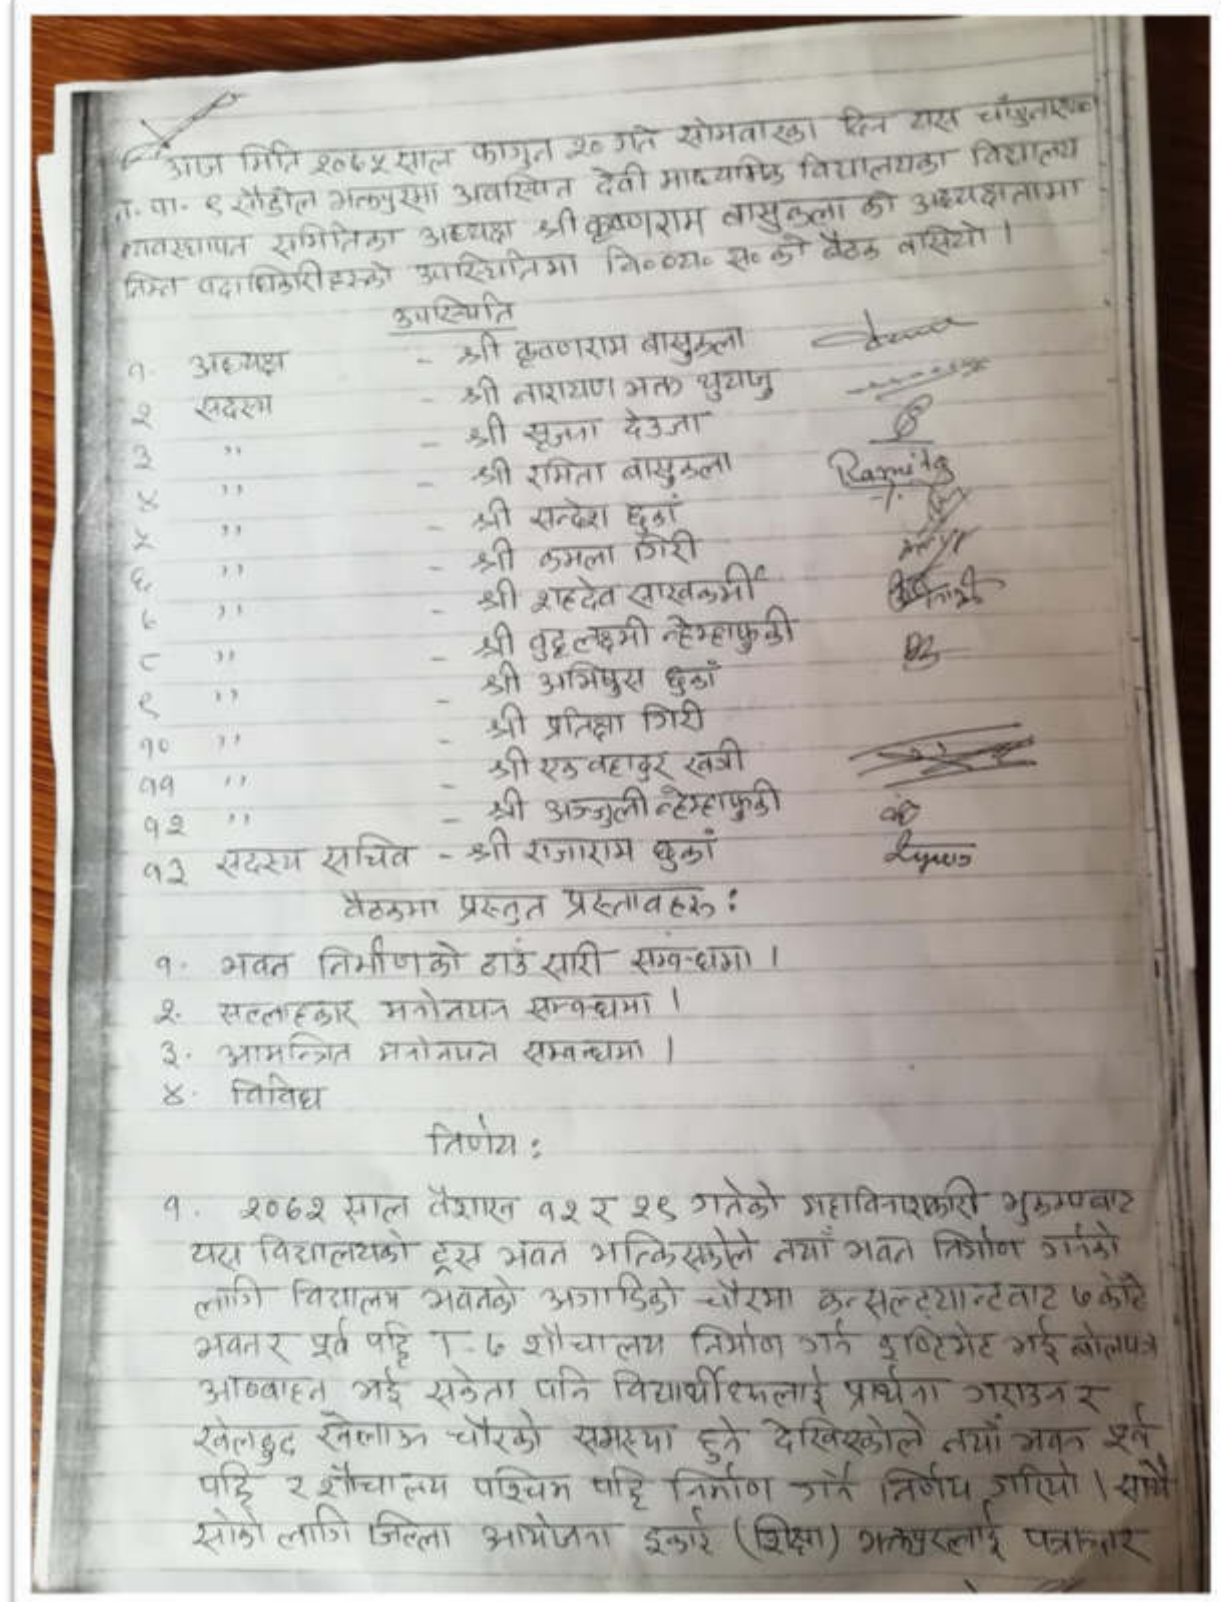 आज मिति २०७५ साल फागुन २० गते सोमवारका दिन यस चाँगुनारायण
न. पा. ९ सौडोल भक्तपुरमा अवस्थित देवी माध्यमिक विद्यालयका विद्यालय
व्यवस्थापन समितिका अध्यक्ष श्री कृष्णराम बासुकला को अध्यक्षतामा
निम्न पदाधिकारीहरुको उपस्थितिमा वि०व्य० स० को बैठक बसियो ।
उपस्थिति
१. अध्यक्ष - श्री कृष्णराम बासुकला
२ सदस्य - श्री नारायण भक्त थुयाजु
३ " - श्री सृजना देउजा
४ " - श्री रमिता बासुकला Ramita
५ " - श्री सन्देश छुकाँ
६ " - श्री कमला गिरी
७ " - श्री शहदेव साखकर्मी
८ " - श्री बुद्धलक्ष्मी न्हेम्हाफुकी
९ " - श्री अभिषुस छुकाँ
१० " - श्री प्रतिक्षा गिरी
११ " - श्री एक बहादुर खत्री
१२ " - श्री अञ्जुली न्हेम्हाफुकी
१३ सदस्य सचिव - श्री राजाराम छुकाँ
बैठकमा प्रस्तुत प्रस्तावहरु :
१. भवन निर्माणको ठाउँ सारी सम्बन्धमा ।
२. सल्लाहकार मनोनयन सम्बन्धमा ।
३. आमन्त्रित मनोनयन सम्बन्धमा ।
४. विविध
निर्णय :
१. २०७२ साल वैशाख १२ र २९ गतेको महाविनाशकारी भुकम्पबाट
यस विद्यालयको ट्रस भवन भत्किसकोले नयाँ भवन निर्माण गर्नको
लागि विद्यालय भवनको अगाडिको चौरमा कन्सल्ट्यान्टबाट ७ कोठे
भवन र पूर्व पट्टि T-7 शौचालय निर्माण गर्न इष्टिमेट भई बोलपत्र
आव्वाहन भई सकेता पनि विद्यार्थीहरुलाई प्रार्थना गराउन र
खेलकुद खेलाउन चौरको समस्या हुने देखिएकोले नयाँ भवन पूर्व
पट्टि र शौचालय पश्चिम पट्टि निर्माण गर्ने निर्णय गरियो । साथै
सोको लागि जिल्ला आयोजना इकाई (शिक्षा) भक्तपुरलाई पत्राचार